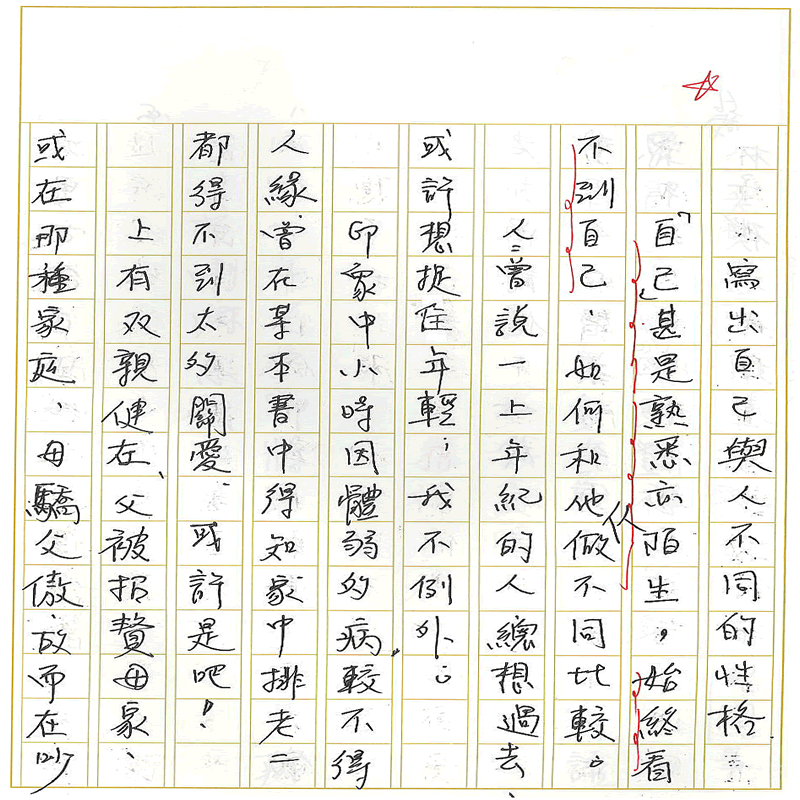 寫出自己與人不同的性格
「自己甚是熟悉亦陌生,始終看
不到自己、如何和他们做不同比較。
人人曾說一上年紀的人總想過去、
或許想捉住年輕;我不例外。
印象中小時因體弱多病,較不得
人緣嘗在某本書中得知家中排老二
都得不到太多關愛、或許是吧!
上有双親健在、父被招贅母家、
或在那種家庭、母驕父傲故而在吵